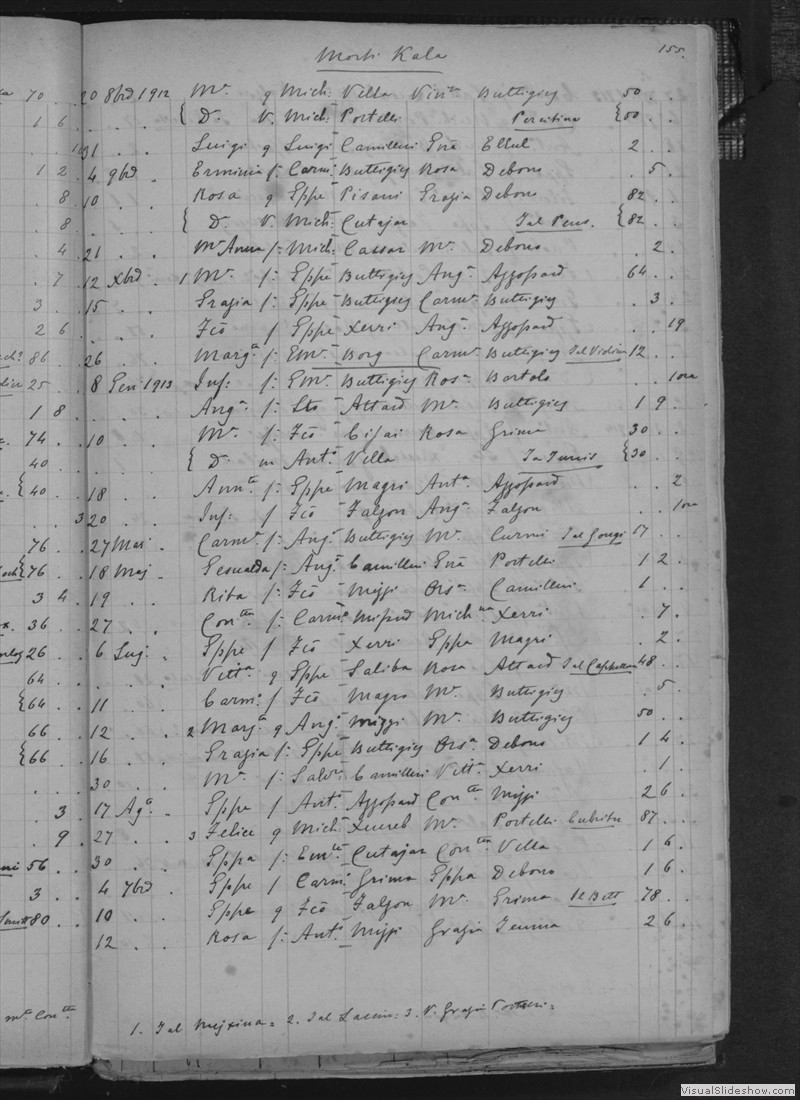 155.
Morti Kala
70 . 20 8bre 1912 Mª q Mich: Vella Vinta Buttigieg 50 . .
1 6 . . . . { D. V. Mich: Portelli Percitina {50 . .
31 . . Luigi q Luigi Camilleri Eva Ellul 2 . .
1 2 . 4 9bre . Erminia f: Carmo Buttigieg Rosa Debono . 5 .
. 8 . 10 . . Rosa q Gppe Pisani Grazia Debono 82 . .
. 8 . . . . { D. V. Mich: Cutajar Tal Pens. {82 . .
. 4 . 21 . . Mª Anna f: Mich: Cassar Mª Debono . 2 .
. 7 . 12 Xbre . 1 Mª f: Gppe Buttigieg Anga Azzopard 64 . .
3 . . 15 . . Grazia f: Gppe Buttigieg Carma Buttigieg . 3 .
2 6 . . . . Fco f Gppe Xerri Anga Azzopard . . 19
86 . . 26 . . Marga f: Eml Borg Carma Buttigieg 12 . .
25 . . 8 Gen 1913 Inf: f: Eml Buttigieg Rosa Bartolo . . 1 ora
1 8 . . . . Anga f: Sto Attard Mª Buttigieg 1 9 .
74 . . 10 . . Mª f: Fco Cifai Rosa Grima 30 . .
40 . . . . . { D. m Anto Vella Ta Tunis {30 . .
{40 . . 18 . . Annta f: Gppe Magri Anta Azzopard . . 2
. . 3 20 . . Inf: f Fco Falzon Anga Falzon . . 1 ora
76 . . 27 Mar . Carma f: Ango Buttigieg Mª Curmi 57 . .
{76 . . 18 Maj . Gesualda f: Ango Camilleri Eva Portelli 1 2 .
3 4 . 19 . . Rita f: Fco Mizzi Orsa Camilleri 1 . .
36 . . 27 . . Contta f: Carmo Mifsud Michna Xerri . 7 .
26 . . 6 Lug . Gppe f Fco Xerri Gppa Magri . 2 .
64 . . . . . Vitta q Gppe Saliba Rosa Attard 48 . .
{64 . . 11 . . Carmo f Fco Magro Mª Buttigieg . 5 .
66 . . 12 . . 2 Marga q Ango Mizzi Mª Buttigieg 50 . .
{66 . . 16 . . Grazia f: Gppe Buttigieg Orsa Debono 1 4 .
. . . 30 . . Mª f: Salvre Camilleri Vitta Xerri . 1 .
. 3 . 17 Ago . Gppe f Anto Azzopard Contta Mizzi 2 6 .
. 9 . 27 . . 3 Felice q Mich: Xuereb Mª Portelli 87 . .
56 . . 30 . . Gppa f: Emle Cutajar Contta Vella 1 6 .
3 . . 4 7bre . Gppe f Carmo Grima Gppa Debono 1 6 .
80 . . 10 . . Gppe q Fco Falzon Mª Grima 78 . .
12 . . Rosa f: Anto Mizzi Grazia Tewma 2 6 .
Mª Contta
1. Tal Mejxina = 2. Tal = 3. V. Grazia Portelli =
VisualSlideshow.com